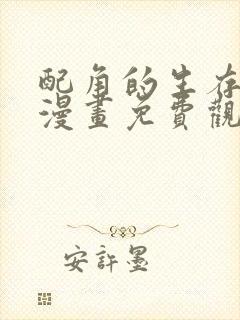 配角的生存
漫畫免費觀
安許墨